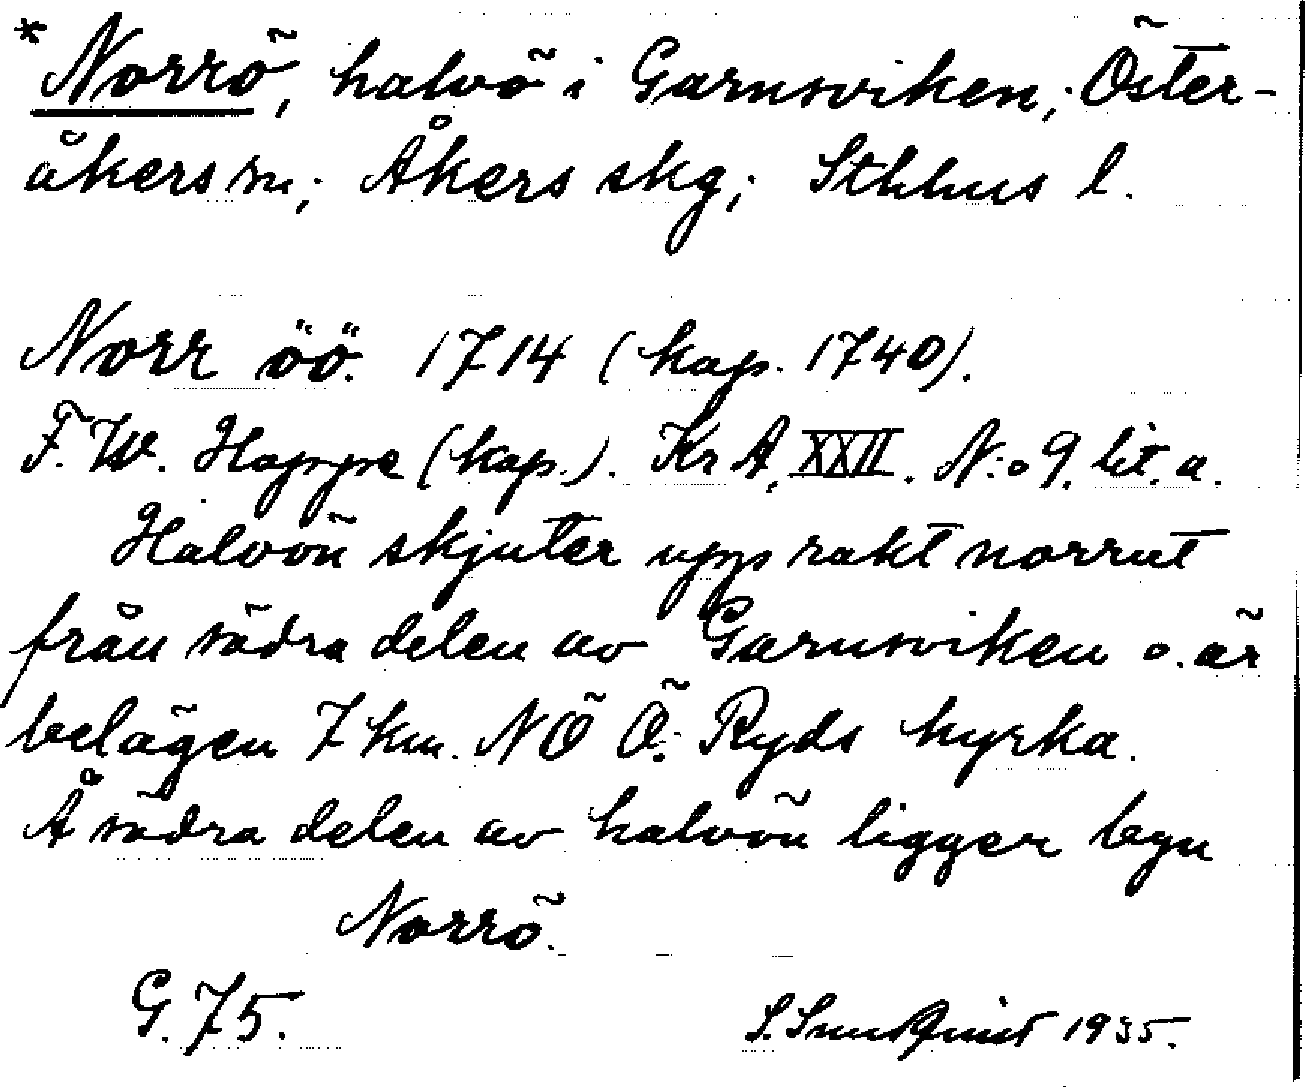 * Norrö, halvö i Garnsviken; Öster-
åkers sn; Åkers skg; Sthlms l.
Norr öö. 1714 (kop. 1740).
F. W. Hoppe (kop.). Kr A, XXII. N:o 9. lit. a.
Halvön skjuter upp rakt norrut
från södra delen av Garnsviken o. är
belägen 7 km. NÖ Ö. Ryds kyrka.
Å södra delen av halvön ligger byn
Norrö.
G. 75.
S. Sundqvist 1935.